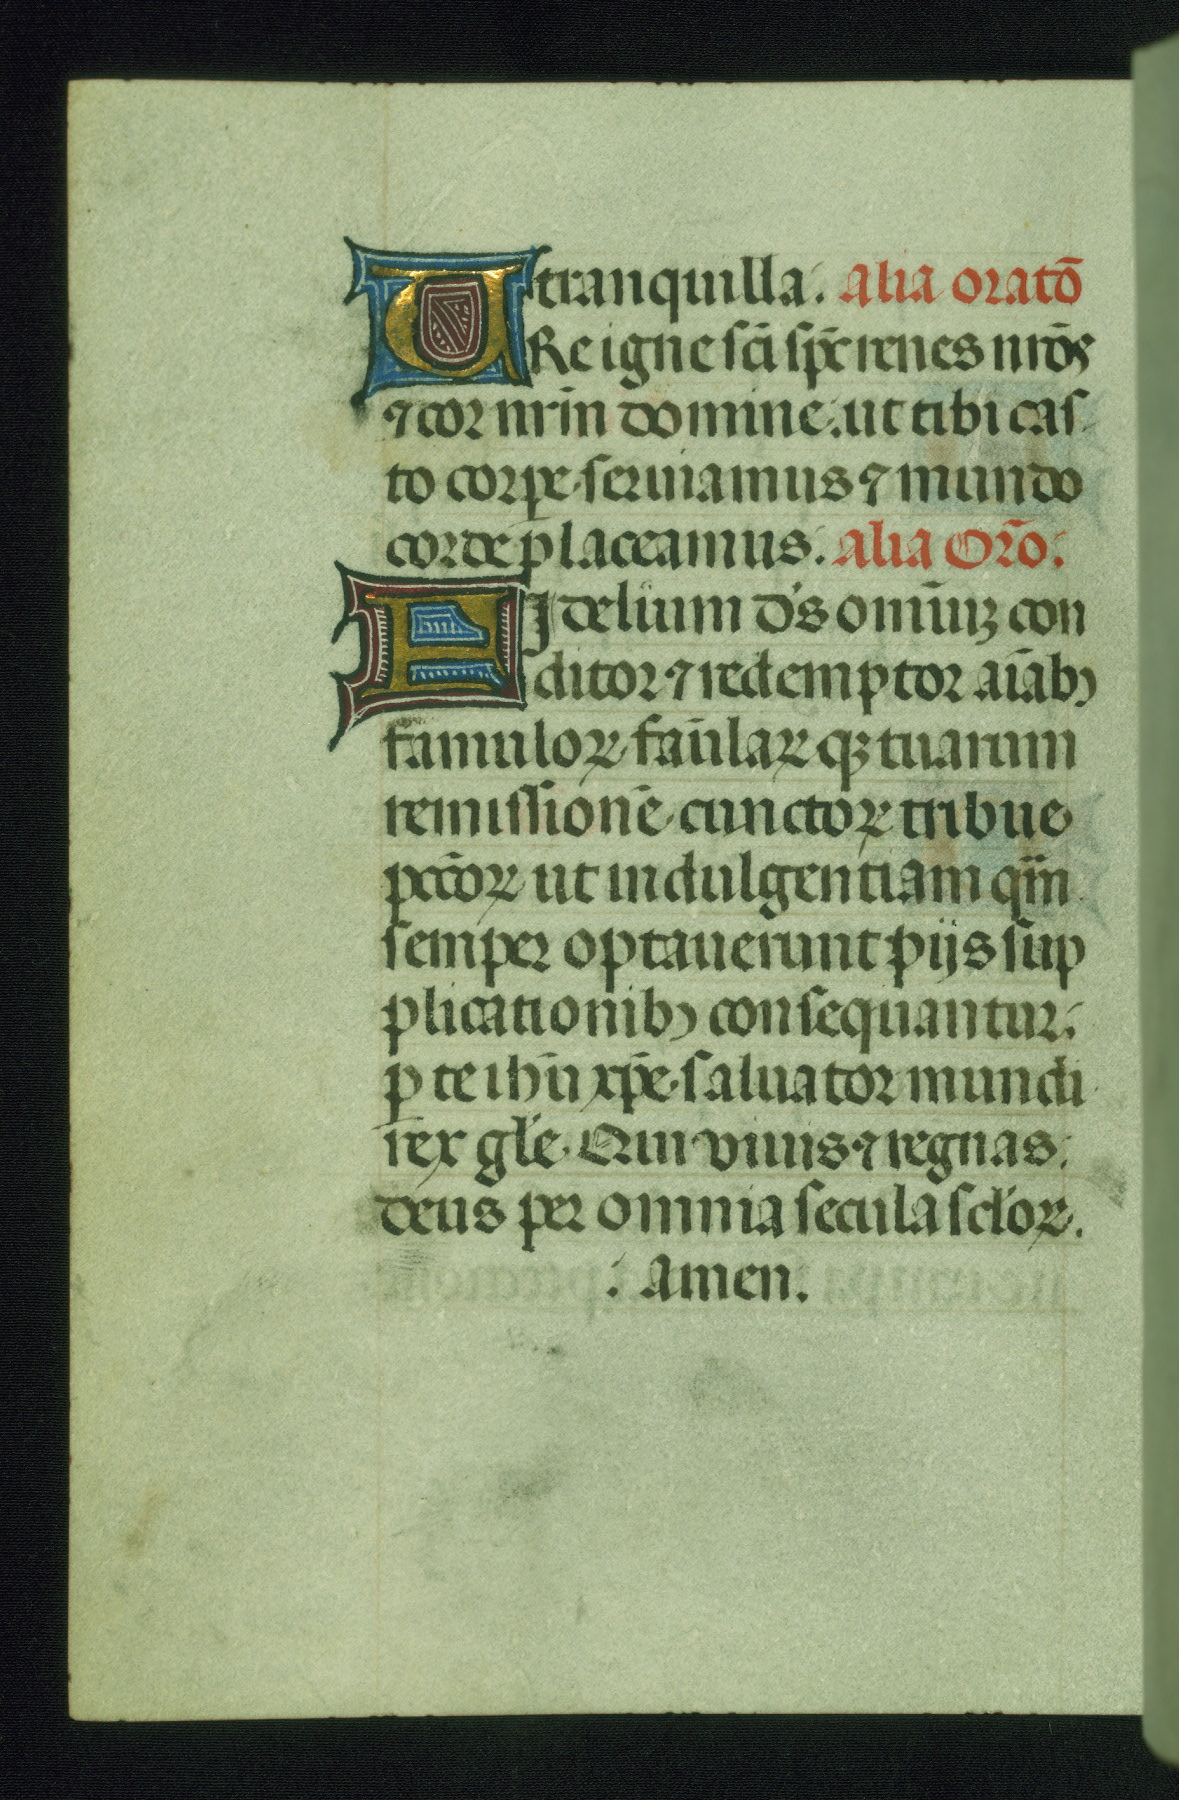 tranquilla. Alia oratō
URe igne sc̄i sp̄c renes nr̄os
⁊ cor nr̄m domine. ut tibi cas
to corpe seruiamus ⁊ mundo
corde placeamus. Alia Or̄o.
FIdelium d's omīuꝫ con
ditor ⁊ redemptor aīabꝫ
famuloꝝ fāulaꝝqꝫ tuarum
remissionē cunctoꝝ tribue
pcc̄oꝝ ut indulgentiam qm̄
semper optauerunt piis sup
plicationibꝫ consequantur.
ꝑ te ihū xp̄e saluator mundi
rex gl'e. Qui viuis ⁊ regnas.
deus per omnia secula scl'oꝝ.
Amen.